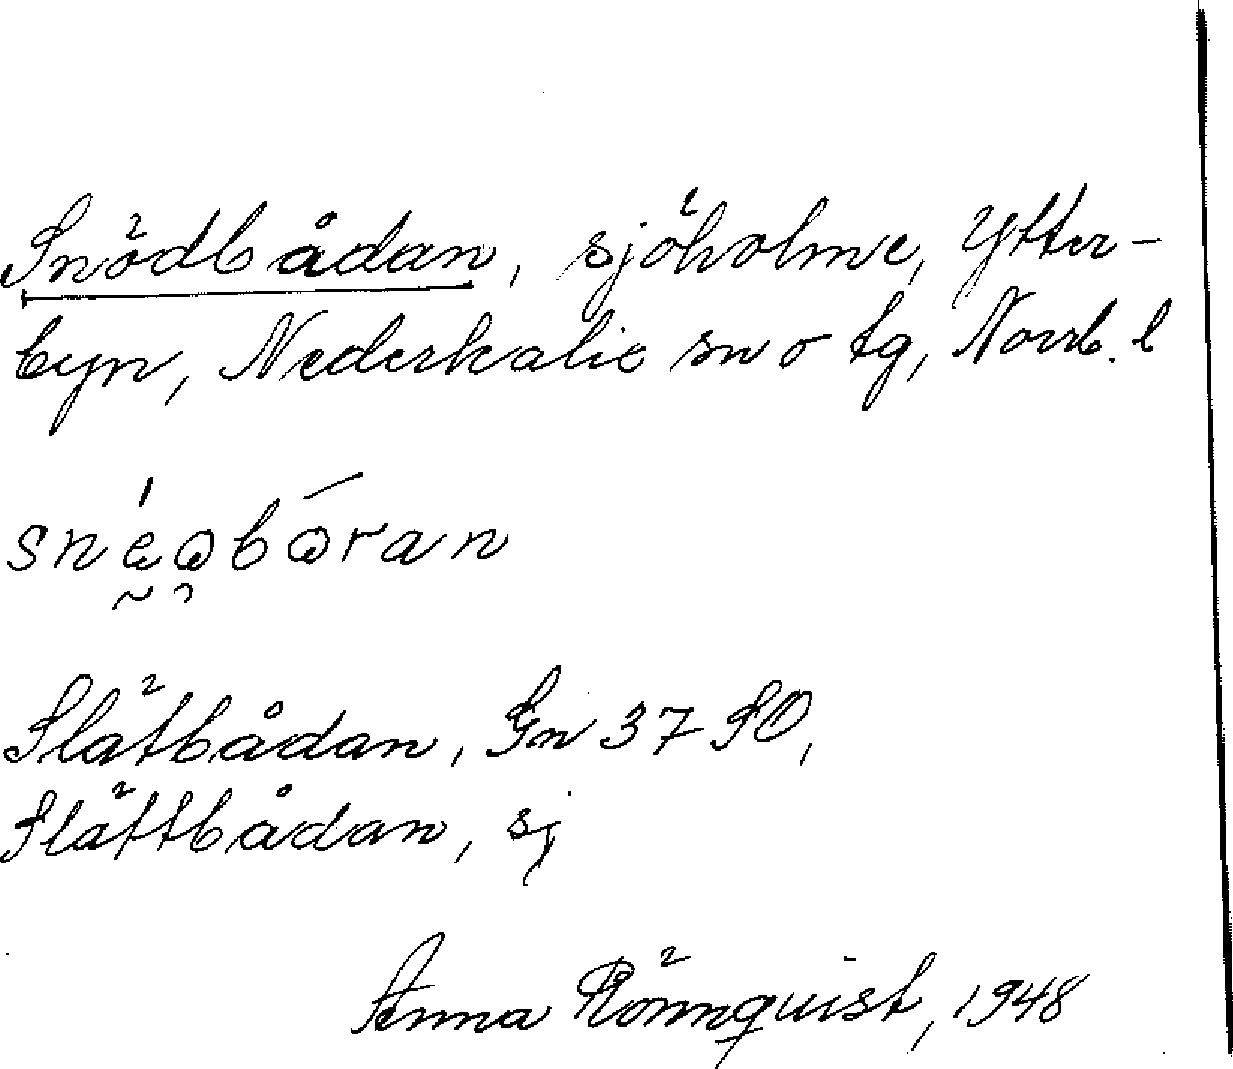 Snödbådan, sjöholme, Ytter-
byn, Nederkalix sn o tg, Norrb. l

Slätbådan, Gn 37 SO,
Slättbådan, sj
Anna Rönnquist, 1948